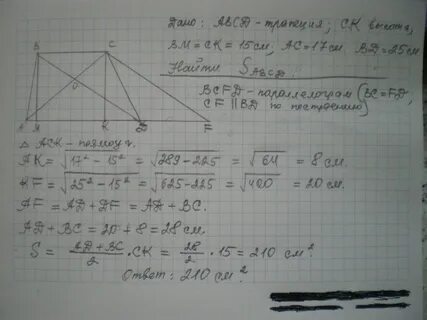 Дано: ABCD - трапеция; CK высота,
BM = CK = 15 см, AC = 17 см BD = 25 см
Найти S ABCD
BCFD - параллелограм (BC = FD,
CF || BD по построению)
B C
O
A M K D F
△ ACK - прямоуг.
AK = √17² - 15² = √289 - 225 = √64 = 8 см.
KF = √25² - 15² = √625 - 225 = √400 = 20 см.
AF = AD + DF = AD + BC.
AD + BC = 20 + 8 = 28 см.
S = AD + BC / 2 · CK = 28 / 2 · 15 = 210 см².
Ответ: 210 см².